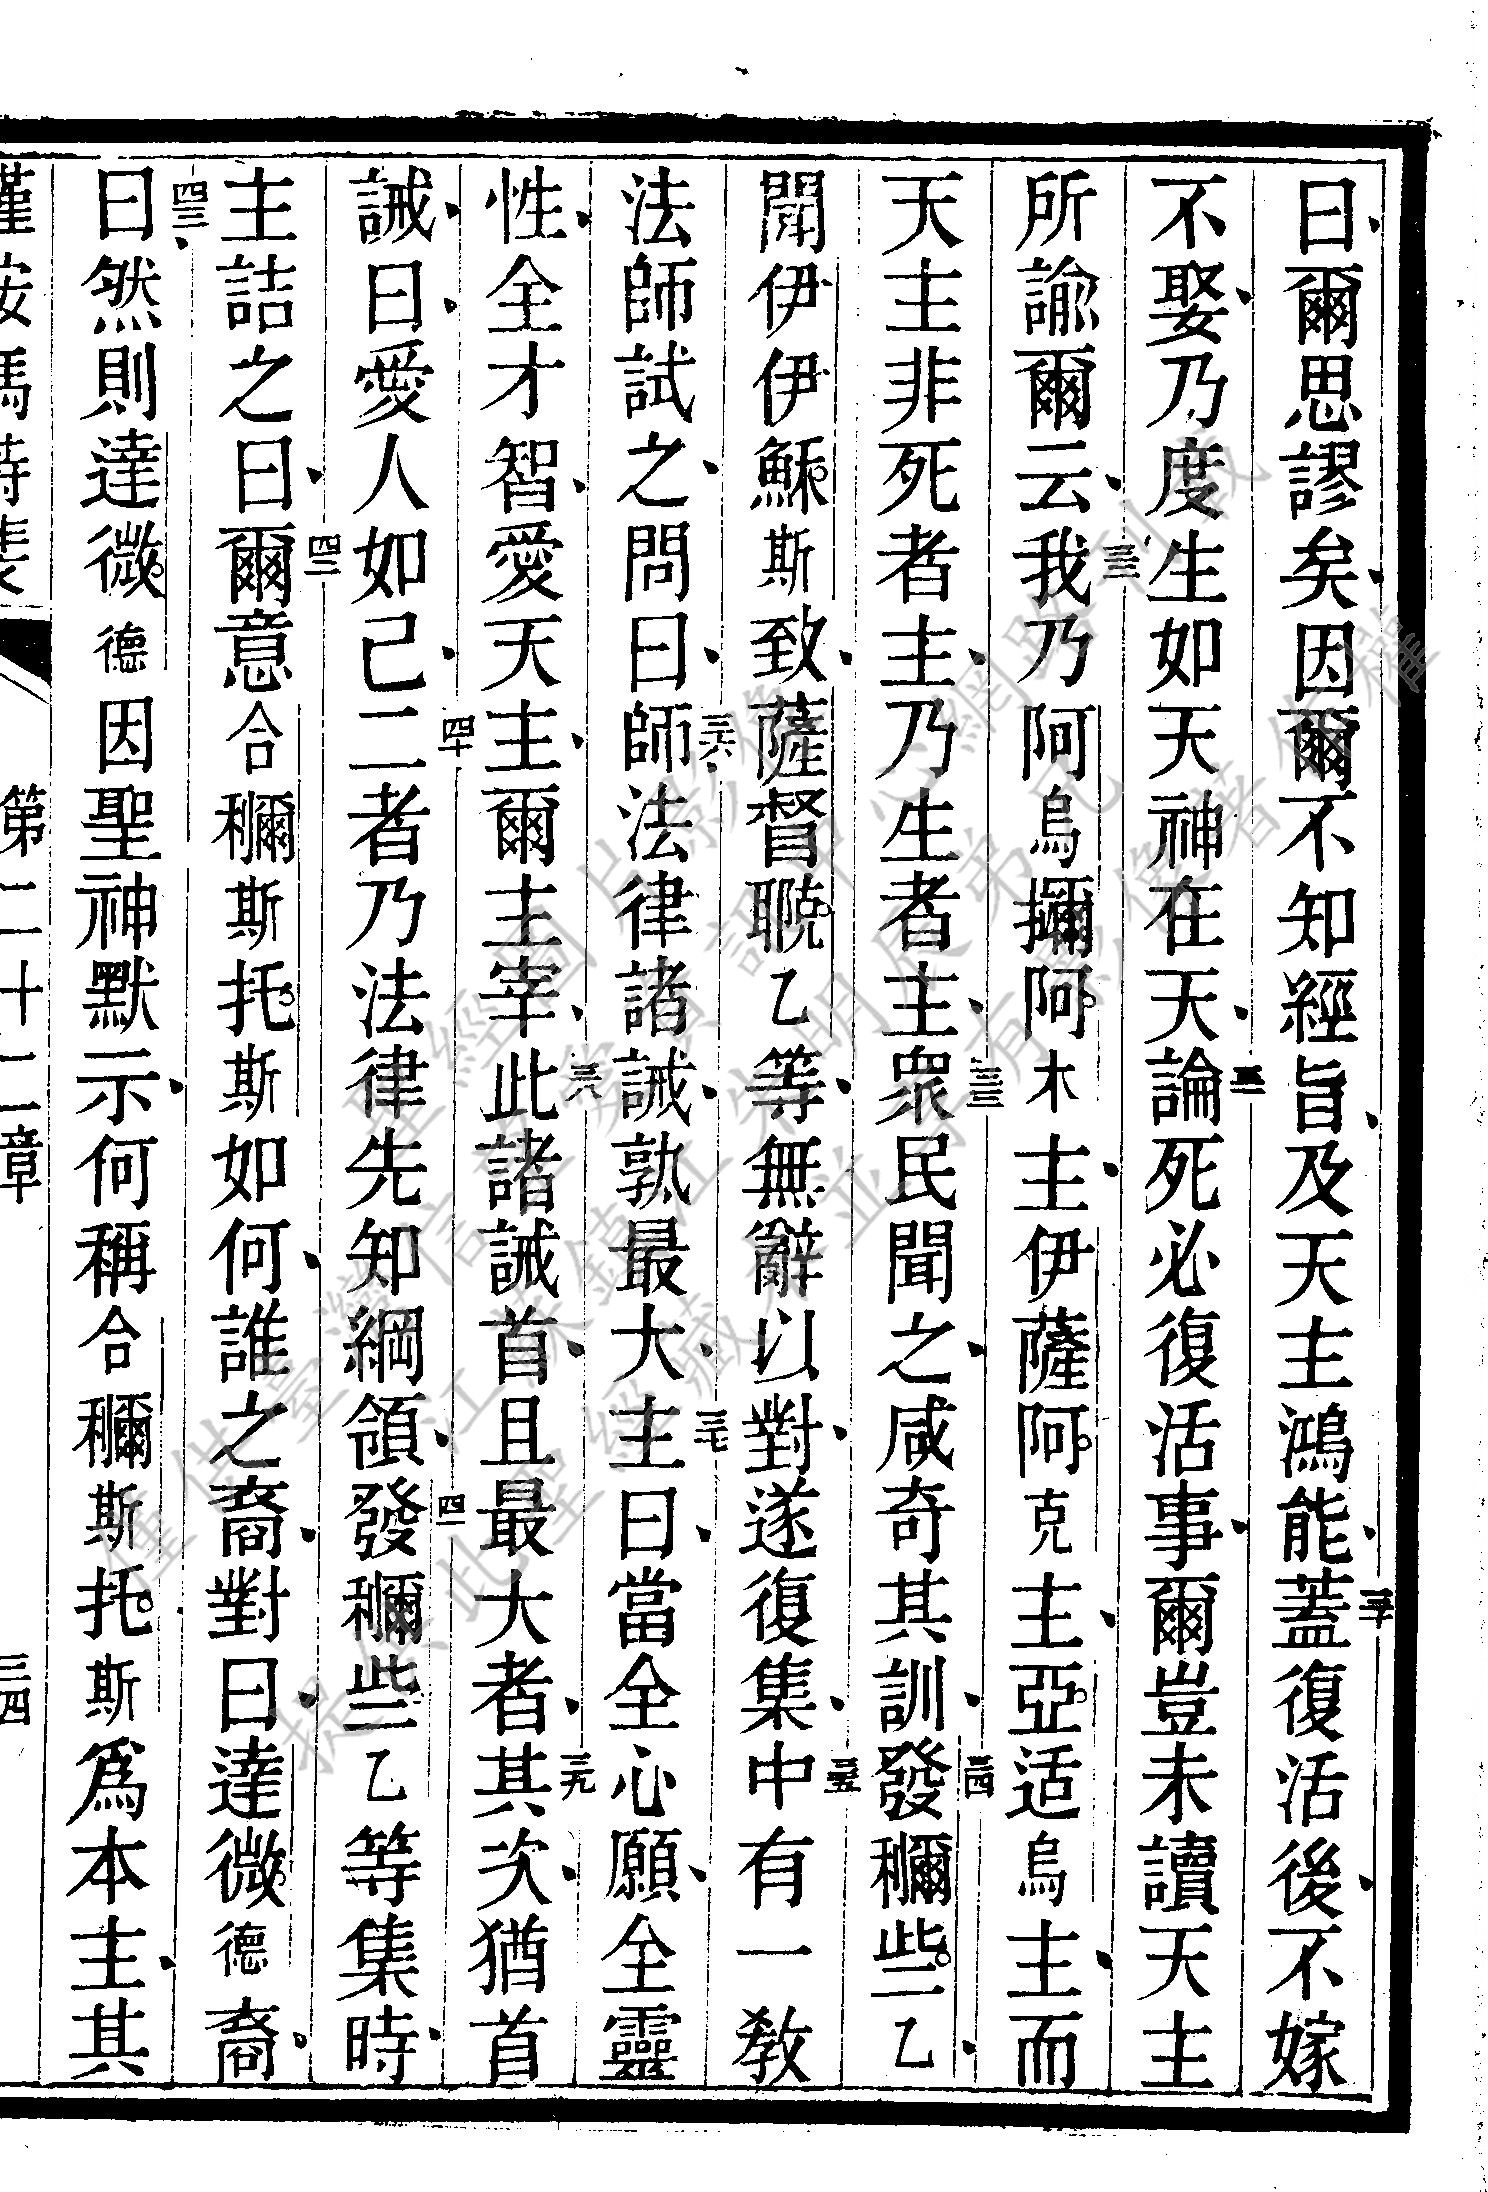 曰爾思謬矣因爾不知經旨及天主鴻能蓋三十復活後不嫁
不娶乃度生如天神在天論三一死必復活事爾豈未讀天主
所諭爾云我三二乃阿烏攡阿木主伊薩阿克主亞适烏主而
天主非死者主乃生者主衆三三民聞之咸奇其訓發三四穪些乙
聞伊伊穌斯致薩督聭乙等無辭以對遂復集中三五有一敎
法師試之問曰師三六法律諸誡孰最大主三七曰當全心願全靈
性全才智愛天主爾主宰此三八諸誡首且最大者其三九次猶首
誡曰愛人如己二四十者乃法律先知綱領發四一穪些乙等集時
主詰之曰爾四二意合穪斯托斯如何誰之裔對曰達微德裔
曰四三然則達微德因聖神默示何稱合穪斯托斯爲本主其
第二十二章 三四